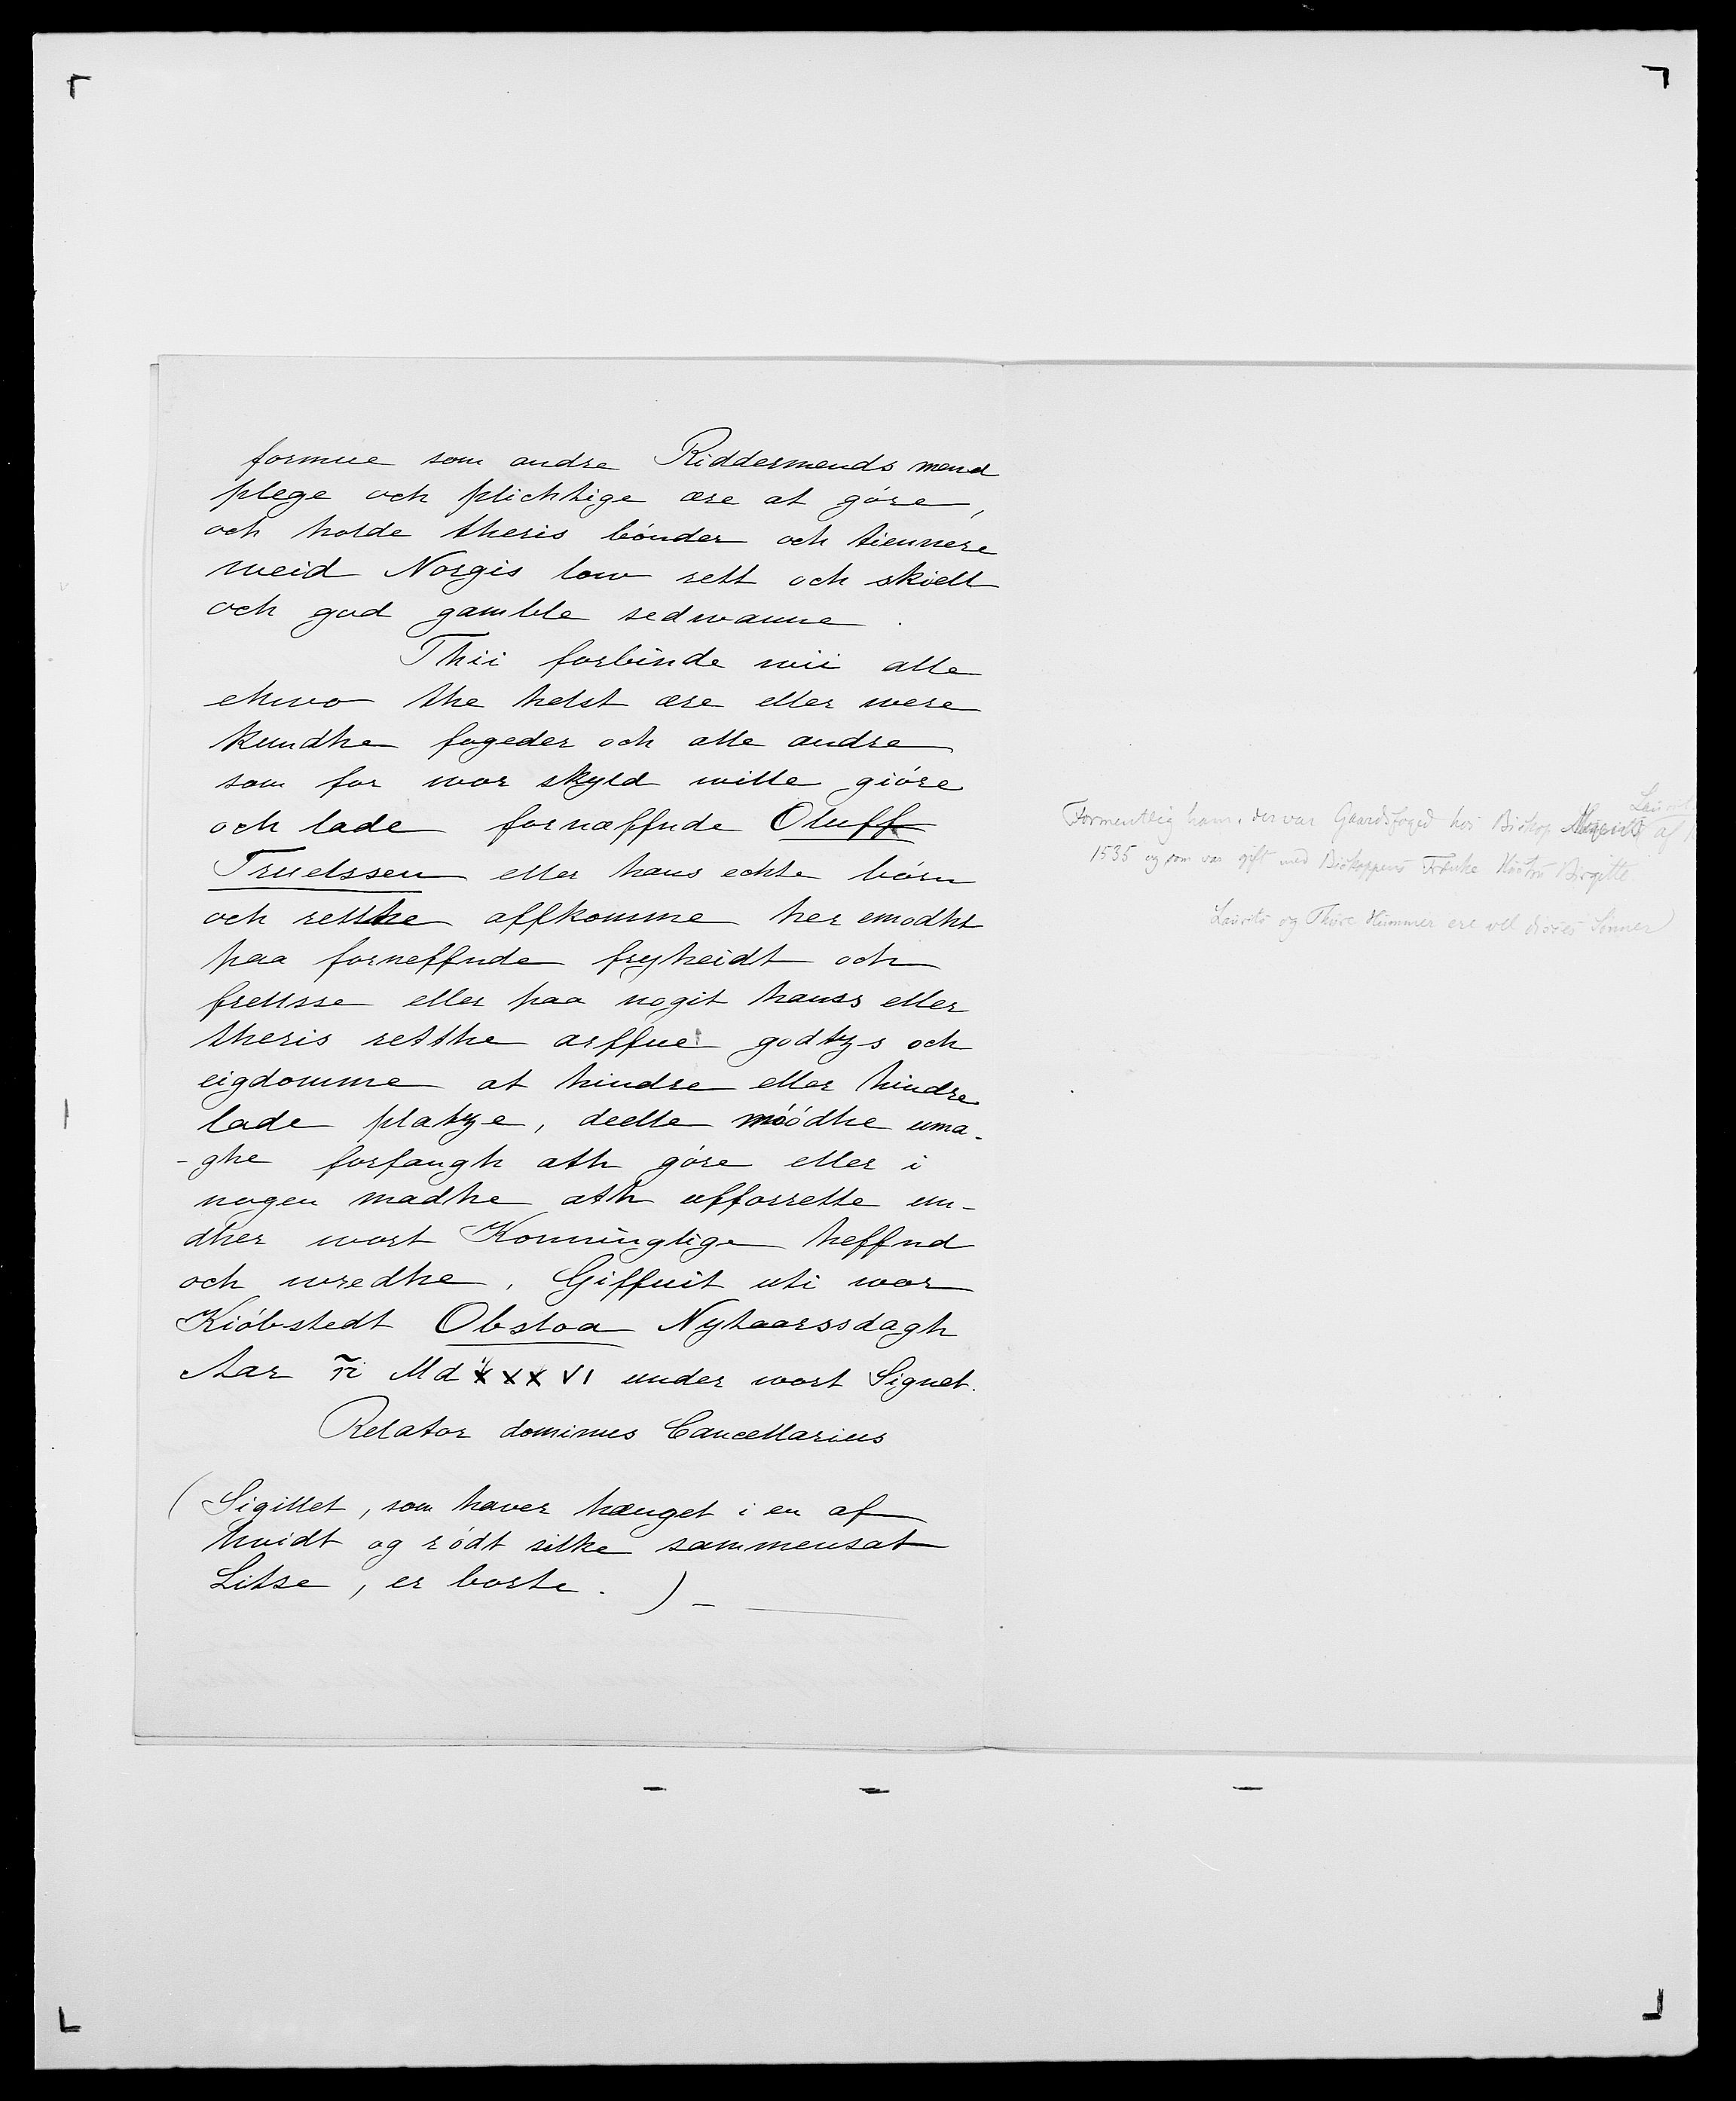 formue som andre Riddermends mend
plege och plichtige ære at góre,
och holde theris bónder och tiennere
meid Norgis low rett och skiell
och god gamble sedwanne.
Thii forbinde wii alle
ehwo the helst ære eller were
kundhe fogeder och alle andre
som for wor skyld wille gióre
och lade fornæffnde Oluff
Truelssen eller hans echte bórn
och retthe affkomme her emodht
paa forneffnde fryheidt och
frellsse eller paa nogit hanss eller
theris retthe arffue godtzs och
eigdomme at hindre eller hindre
lade platze, deelle móódhe uma-
-ghe forfangh ath góre eller i
nogen madhe ath ufforrette un-
dher wort Konninglige heffnd
och wredhe. Giffuit uti wor
Kióbstedt Obsloa Nyhaarssdagh
Aar Md xxx VI under wort Signet.
Relator dominus Cancellarius
(Sigillet, som haver hænget i en af
hvidt og ródt silke sammensat
Litse, er borte.)-
Formentlig ham, der var Gaardsfoged hos Biskop af
1535 og som var gift med Biskoppens Frænke Hustru Birgitte.
Laurits og Thore Hummer ere vel disses Sønner)